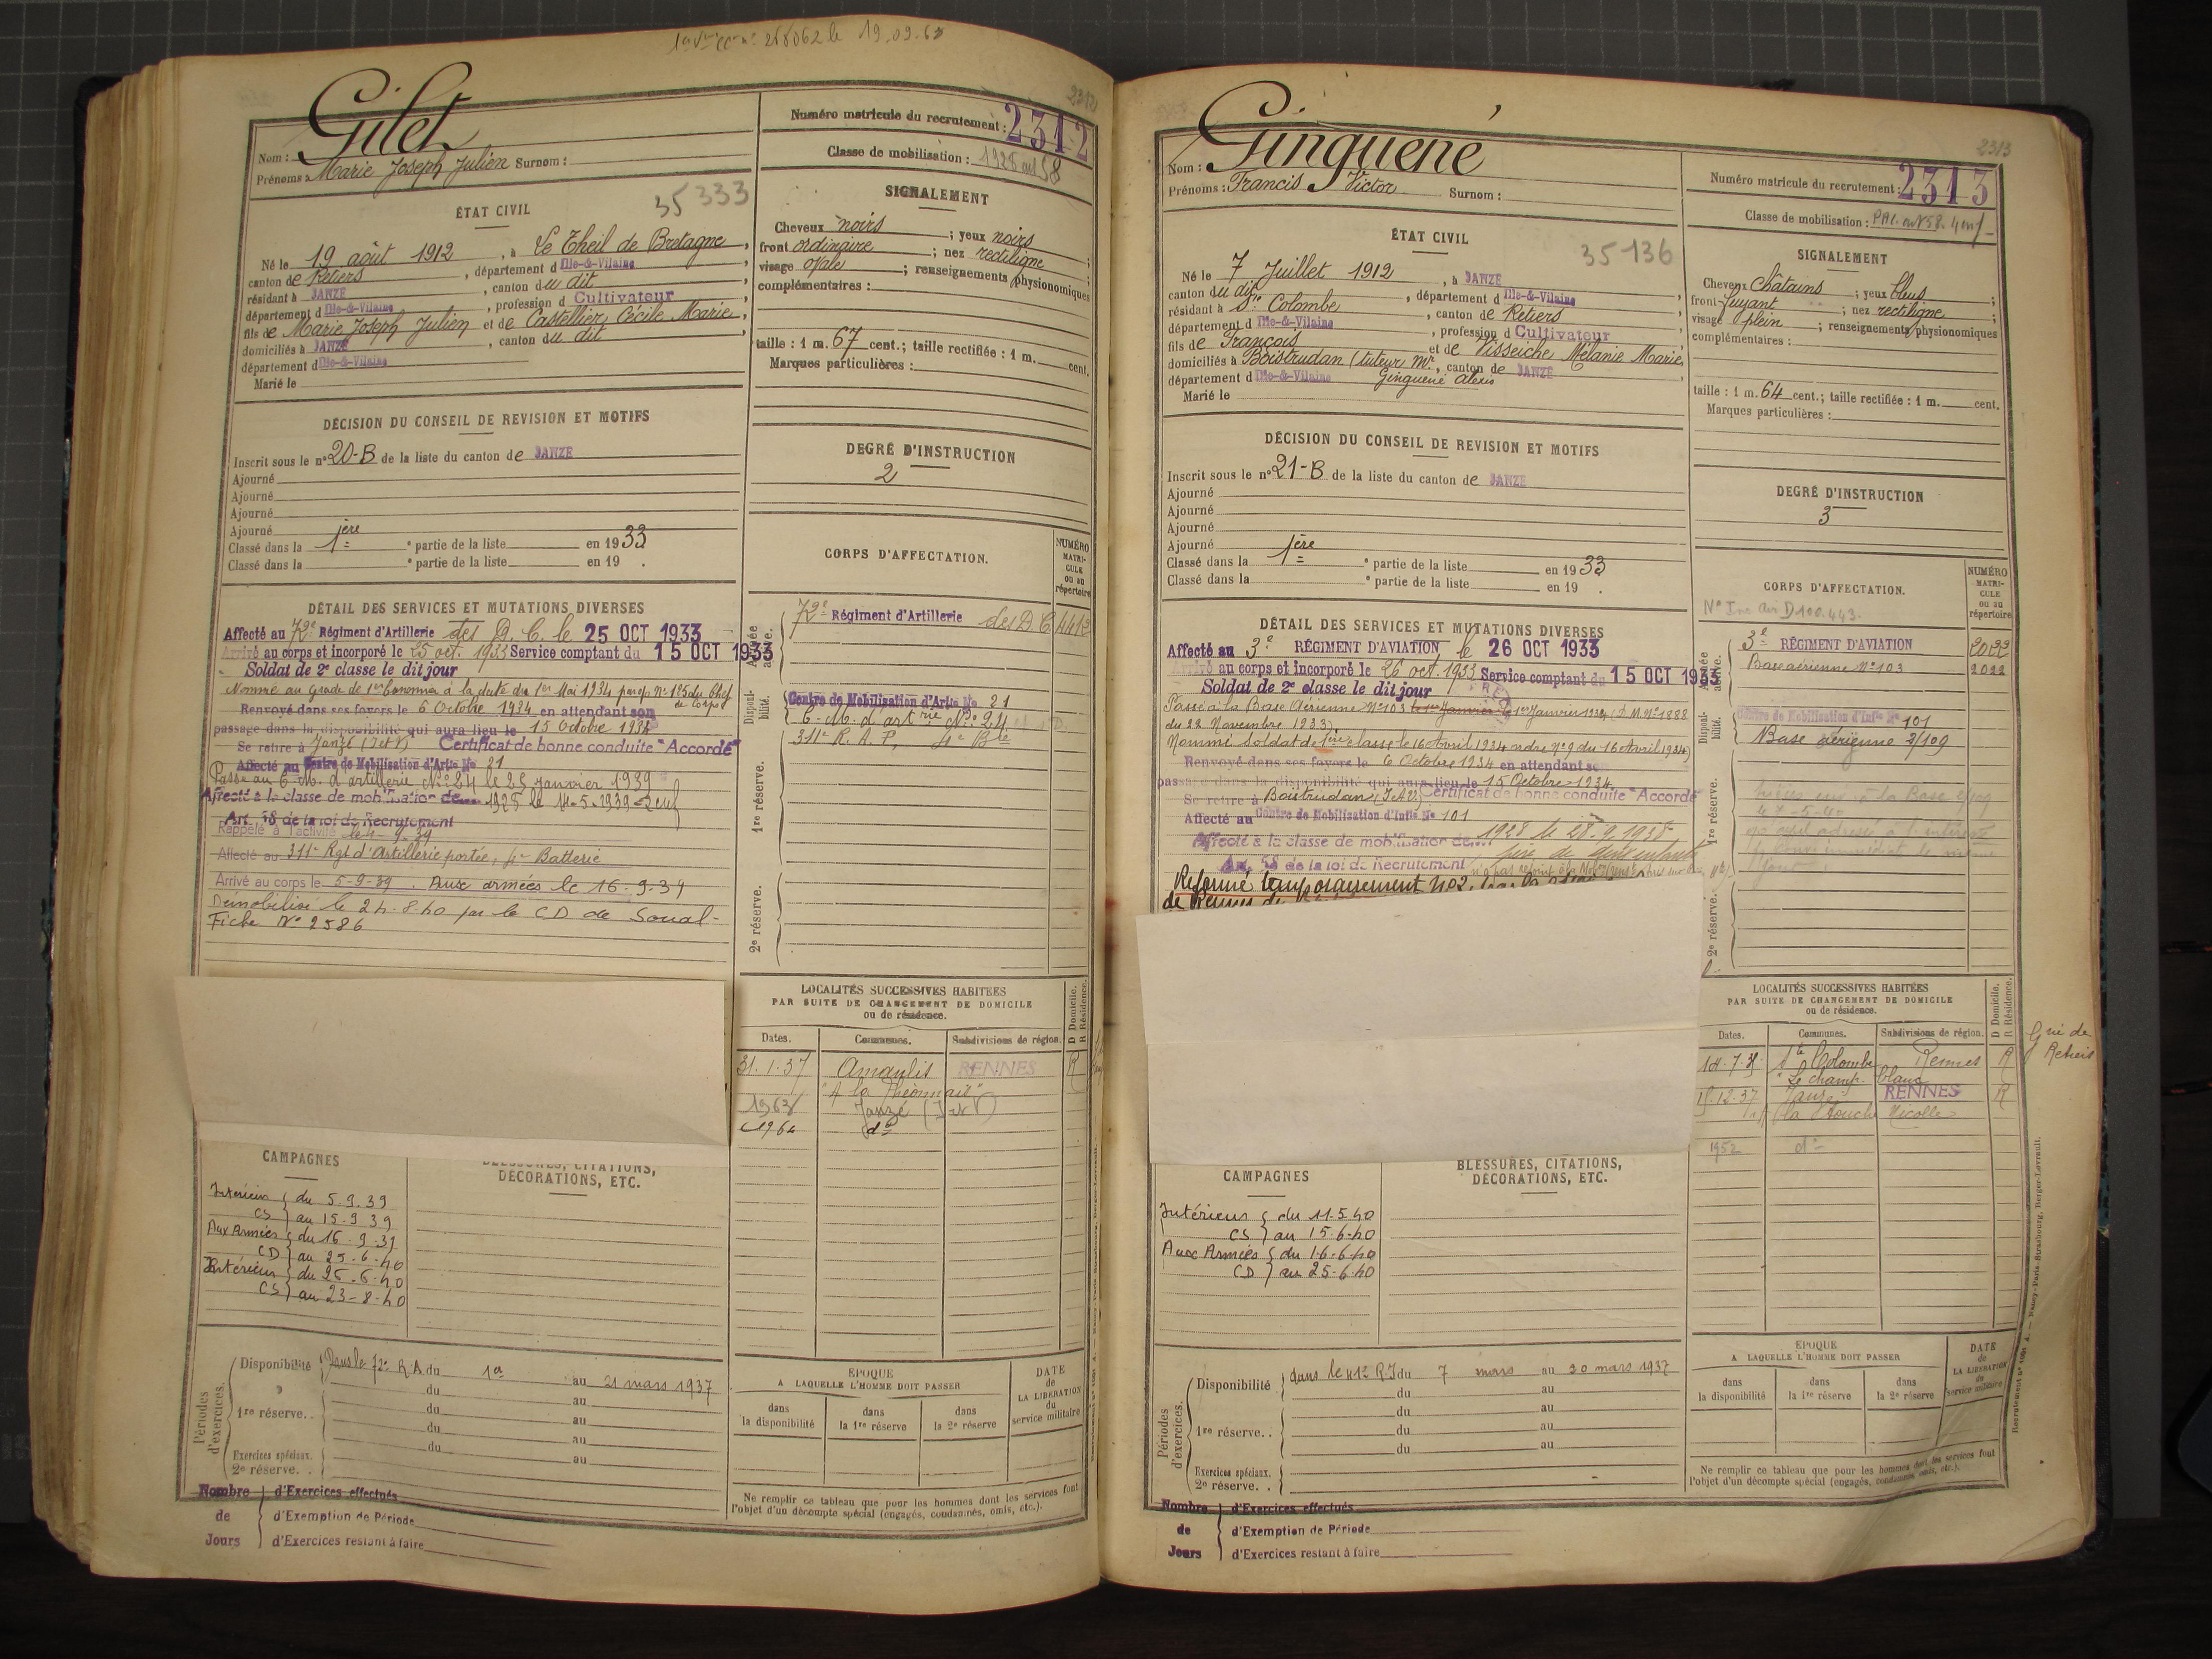 2312
Gilet
Nom :
Prénoms : Marie Joseph Julien Surnom :
Numéro matricule du recrutement : 2312
Classe de mobilisation :
35333
ÉTAT CIVIL
Né le 19 août 1912, à Le Theil de Bretagne,
canton de Retiers, département d Ille-&-Vilaine
résidant à JANZÉ, canton du dit
département d Ille-&-Vilaine, profession d Cultivateur
fils de Marie Joseph Julien et de Castellier Cécile Marie,
domiciliés à JANZÉ, canton du dit
département d Ille-&-Vilaine
Marié le
SIGNALEMENT
Cheveux noirs ; yeux noirs
front ordinaire ; nez rectiligne ;
visage ovale ; renseignements physionomiques
complémentaires :
taille : 1 m. 67 cent. ; taille rectifiée : 1 m. cent.
Marques particulières :
DÉCISION DU CONSEIL DE REVISION ET MOTIFS
Inscrit sous le n° 20-B de la liste du canton de JANZÉ
Ajourné
Ajourné
Ajourné
Ajourné
Classé dans la 1ère partie de la liste en 1933
Classé dans la partie de la liste en 19 .
DEGRÉ D'INSTRUCTION
2
CORPS D'AFFECTATION.
NUMÉRO MATRI-CULE OU AU répertoire
DÉTAIL DES SERVICES ET MUTATIONS DIVERSES
Affecté au 72e Régiment d'Artillerie des D. C. le 25 OCT 1933
Arrivé au corps et incorporé le 25 oct. 1933 Service comptant du 15 OCT 1933
Soldat de 2e classe le dit jour
Nommé au grade de 1er Canonnier à la date du 1er Mai 1934 par op. N° 125 du Chef
de Corps
Renvoyé dans ses foyers le 6 Octobre 1934 en attendant son
passage dans la disponibilité qui aura lieu le 15 Octobre 1934
Se retire à Janzé (I et V) Certificat de bonne conduite "Accordé"
Affecté au Centre de Mobilisation d'Artie No 21
Passé au C. M. d'artillerie N° 24 le 25 janvier 1939
Affecté à la classe de mobilisation de 1925 le 11-5-1939
Art. 58 de la loi de Recrutement
Rappelé à l'activité le 4-9-39
Affecté au 311e Rgt d'Artillerie portée, 4e Batterie
Arrivé au corps le 5-9-39. Aux armées le 16-9-39
Démobilisé le 24-8-40 par le CD de Soual-
Fiche N° 2586
Armée active.
72e Régiment d'Artillerie des D C
Disponibilité.
Centre de Mobilisation d'Artie No 21
C. M. d'artrie N° 24
311e R. A. P. 4e Bie
1re réserve.
2e réserve.
LOCALITÉS SUCCESSIVES HABITÉES
PAR SUITE DE CHANGEMENT DE DOMICILE
ou de résidence.
D Domicile.
R Résidence.
Dates. Communes. Subdivisions de région.
31.1.37 Amanlis RENNES R
1963 Janzé (I et V)
1964 do
CAMPAGNES
BLESSURES, CITATIONS,
DÉCORATIONS, ETC.
Intérieur du 5.9.39
CS au 15.9.39
Aux Armées du 16.9.39
CD au 25.6.40
Intérieur du 26.6.40
CS au 23-8-40
Périodes d'exercices.
Disponibilité Dans le 72e R.A du 1er au 21 mars 1937
du au
1re réserve. . du au
du au
du au
Exercices spéciaux.
2e réserve. .
Nombre d'Exercices effectués
de d'Exemption de Période
Jours d'Exercices restant à faire
ÉPOQUE
A LAQUELLE L'HOMME DOIT PASSER
dans la disponibilité dans la 1re réserve dans la 2e réserve
DATE de LA LIBÉRATION du service militaire
Ne remplir ce tableau que pour les hommes dont les services font
l'objet d'un décompte spécial (engagés, condamnés, omis, etc.).
2313
Ginguené
Nom :
Prénoms : Francis Victor Surnom :
Numéro matricule du recrutement : 2313
Classe de mobilisation :
35136
ÉTAT CIVIL
Né le 7 Juillet 1912, à JANZÉ
canton du dit, département d Ille-&-Vilaine
résidant à Ste Colombe, canton de Retiers
département d Ille-&-Vilaine, profession d Cultivateur
fils de François et de Visseiche Mélanie Marie,
domiciliés à Boistrudan (tuteur Mr., canton de JANZÉ
département d Ille-&-Vilaine Ginguené Alexis
Marié le
SIGNALEMENT
Cheveux Châtains ; yeux bleus ;
front fuyant ; nez rectiligne ;
visage plein ; renseignements physionomiques
complémentaires :
taille : 1 m. 64 cent. ; taille rectifiée : 1 m. cent.
Marques particulières :
DÉCISION DU CONSEIL DE REVISION ET MOTIFS
Inscrit sous le n° 21-B de la liste du canton de JANZÉ
Ajourné
Ajourné
Ajourné
Ajourné
Classé dans la 1ère partie de la liste en 1933
Classé dans la partie de la liste en 19 .
DEGRÉ D'INSTRUCTION
3
CORPS D'AFFECTATION.
NUMÉRO MATRI-CULE OU AU répertoire
DÉTAIL DES SERVICES ET MUTATIONS DIVERSES
Affecté au 3e RÉGIMENT D'AVIATION le 26 OCT 1933
Arrivé au corps et incorporé le 26 oct. 1933 Service comptant du 15 OCT 1933
Soldat de 2e classe le dit jour
Passé à la Base Aérienne N° 103 le 1er Janvier 1934 (D.M. N° 1888
du 22 Novembre 1933)
Nommé Soldat de 1ère classe le 16 Avril 1934 ordre N° 9 du 16 Avril 1934)
Renvoyé dans ses foyers le 6 Octobre 1934 en attendant so
passage dans la disponibilité qui aura lieu le 15 Octobre 1934
Se retire à Boistrudan (I & V.) Certificat de bonne conduite "Accordé
Affecté au Centre de Mobilisation d'Infie No 101
Affecté à la classe de mobilisation de 1928 le 28.9.1938
Art. 58 de la loi de Recrutement
Réformé temporairement N°2
de Rennes
Armée active.
3e RÉGIMENT D'AVIATION
Base aérienne N° 103 2022
Disponibilité.
Centre de Mobilisation d'Infie No 101
Base aérienne 2/109
1re réserve.
2e réserve.
LOCALITÉS SUCCESSIVES HABITÉES
PAR SUITE DE CHANGEMENT DE DOMICILE
ou de résidence.
D Domicile.
R Résidence.
Dates. Communes. Subdivisions de région.
Ste Colombe Rennes R
Le champ blanc
Janzé RENNES R
la Touche
1952 do
CAMPAGNES
BLESSURES, CITATIONS,
DÉCORATIONS, ETC.
Intérieur du 11.5.40
CS au 15.6.40
Aux Armées du 16.6.40
CD au 25.6.40
Périodes d'exercices.
Disponibilité dans le 41e R.I du 7 mars au 20 mars 1937
du au
1re réserve. . du au
du au
du au
Exercices spéciaux.
2e réserve. .
Nombre d'Exercices effectués
de d'Exemption de Période
Jours d'Exercices restant à faire
ÉPOQUE
A LAQUELLE L'HOMME DOIT PASSER
dans la disponibilité dans la 1re réserve dans la 2e réserve
DATE de LA LIBÉRATION du service militaire
Ne remplir ce tableau que pour les hommes dont les services font
l'objet d'un décompte spécial (engagés, condamnés, omis, etc.).